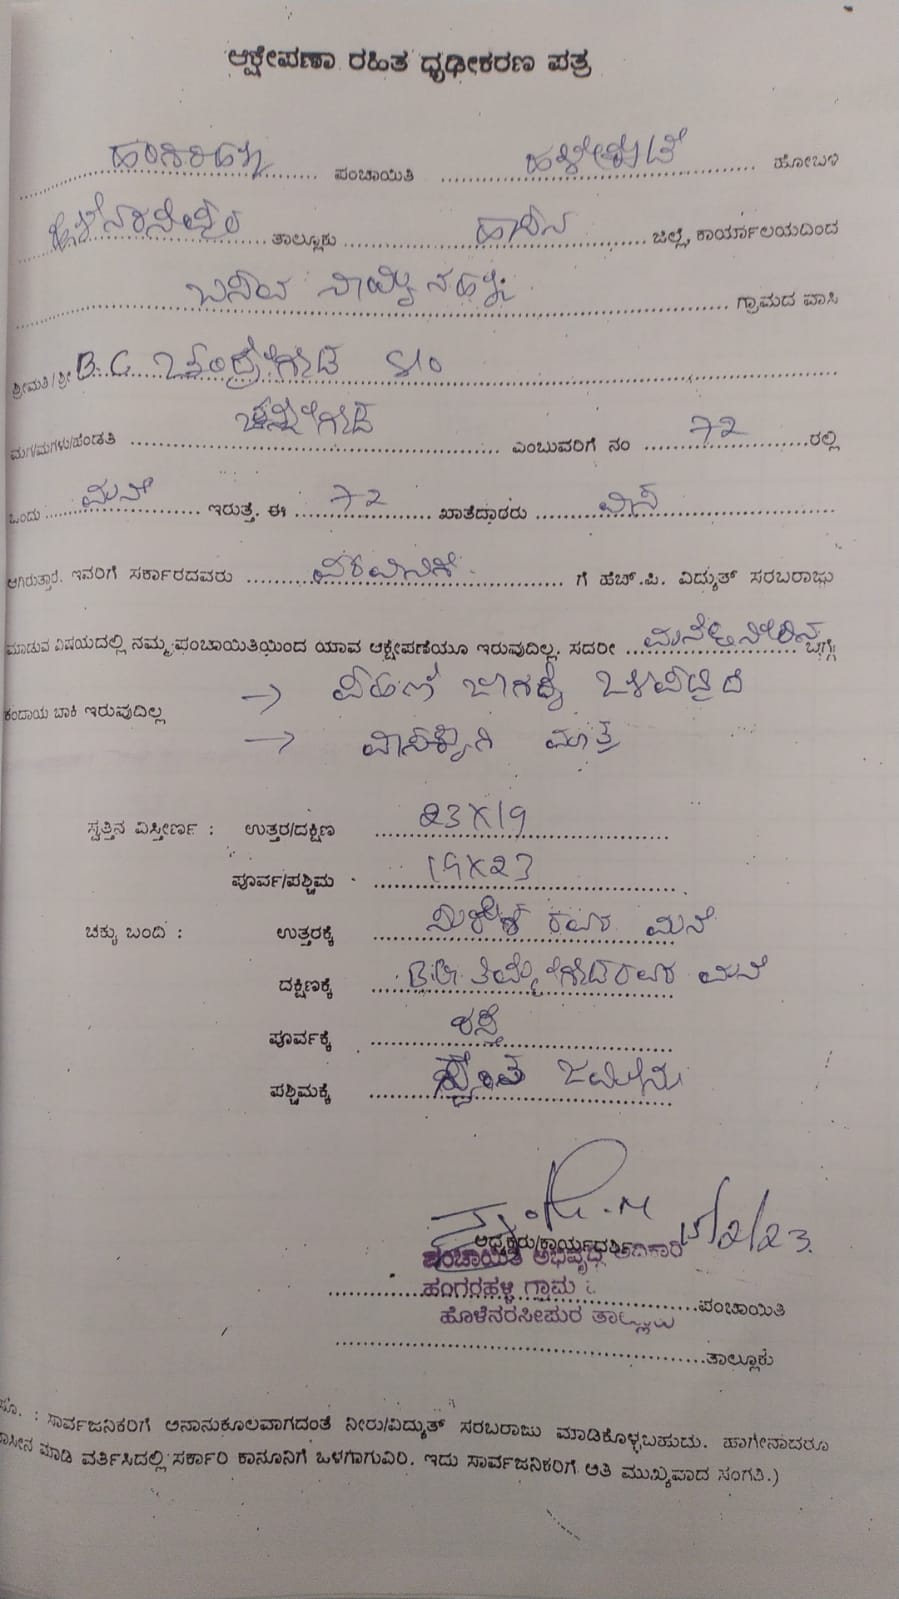 ಆಕ್ಷೇಪಣಾ ರಹಿತ ಧೃಢೀಕರಣ ಪತ್ರ
ಹಂಗರಹಳ್ಳಿ ಪಂಚಾಯಿತಿ ಹಳೇಕೋಟೆ ಹೋಬಳಿ
ಹೊಳೆನರಸೀಪುರ ತಾಲ್ಲೂಕು ಹಾಸನ ಜಿಲ್ಲೆ, ಕಾರ್ಯಾಲಯದಿಂದ
ಗ್ರಾಮದ ವಾಸಿ
ಶ್ರೀಮತಿ/ಶ್ರೀ B.C. ಚಂದ್ರೇಗೌಡ S/o
ಮಗ/ಮಗಳು/ಹೆಂಡತಿ ಚನ್ನೇಗೌಡ ಎಂಬುವರಿಗೆ ನಂ 72 ರಲ್ಲಿ
ಒಂದು ಮನೆ ಇರುತ್ತೆ. ಈ 72 ಖಾತೆದಾರರು ವಾಸ
ಆಗಿರುತ್ತಾರೆ. ಇವರಿಗೆ ಸರ್ಕಾರದವರು ಗೆ ಹೆಚ್.ಪಿ. ವಿದ್ಯುತ್ ಸರಬರಾಘು
ಮಾಡುವ ವಿಷಯದಲ್ಲಿ ನಮ್ಮ ಪಂಚಾಯಿತಿಯಿಂದ ಯಾವ ಆಕ್ಷೇಪಣೆಯೂ ಇರುವುದಿಲ್ಲ. ಸದರೀ ಬಗ್ಗೆ
ಕಂದಾಯ ಬಾಕಿ ಇರುವುದಿಲ್ಲ
→ ಮಾತ್ರ
ಸ್ವತ್ತಿನ ವಿಸ್ತೀರ್ಣ : ಉತ್ತರ/ದಕ್ಷಿಣ 23X19
ಪೂರ್ವ/ಪಶ್ಚಿಮ 19X23
ಚಕ್ಕು ಬಂದಿ : ಉತ್ತರಕ್ಕೆ ರವರ ಮನೆ
ದಕ್ಷಿಣಕ್ಕೆ B.G. ತಿಮ್ಮೇಗೌಡರವರ ಮನೆ
ಪೂರ್ವಕ್ಕೆ ರಸ್ತೆ
ಪಶ್ಚಿಮಕ್ಕೆ ಸ್ವಂತ ಜಮೀನು
15/2/23.
ಅಧ್ಯಕ್ಷರು/ಕಾರ್ಯದರ್ಶಿ
ಪಂಚಾಯಿತಿ ಅಭಿವೃದ್ಧಿ ಅಧಿಕಾರಿ
ಹಂಗರಹಳ್ಳಿ ಗ್ರಾಮ ಪಂಚಾಯಿತಿ
ಹೊಳೆನರಸೀಪುರ ತಾಲ್ಲೂಕು
ತಾಲ್ಲೂಕು
ಸೂ. : ಸಾರ್ವಜನಿಕರಿಗೆ ಅನಾನುಕೂಲವಾಗದಂತೆ ನೀರು/ವಿದ್ಯುತ್ ಸರಬರಾಜು ಮಾಡಿಕೊಳ್ಳಬಹುದು. ಹಾಗೇನಾದರೂ
ಮಾಡಿ ವರ್ತಿಸಿದಲ್ಲಿ ಸರ್ಕಾರಿ ಕಾನೂನಿಗೆ ಒಳಗಾಗುವಿರಿ. ಇದು ಸಾರ್ವಜನಿಕರಿಗೆ ಅತಿ ಮುಖ್ಯವಾದ ಸಂಗತಿ.)